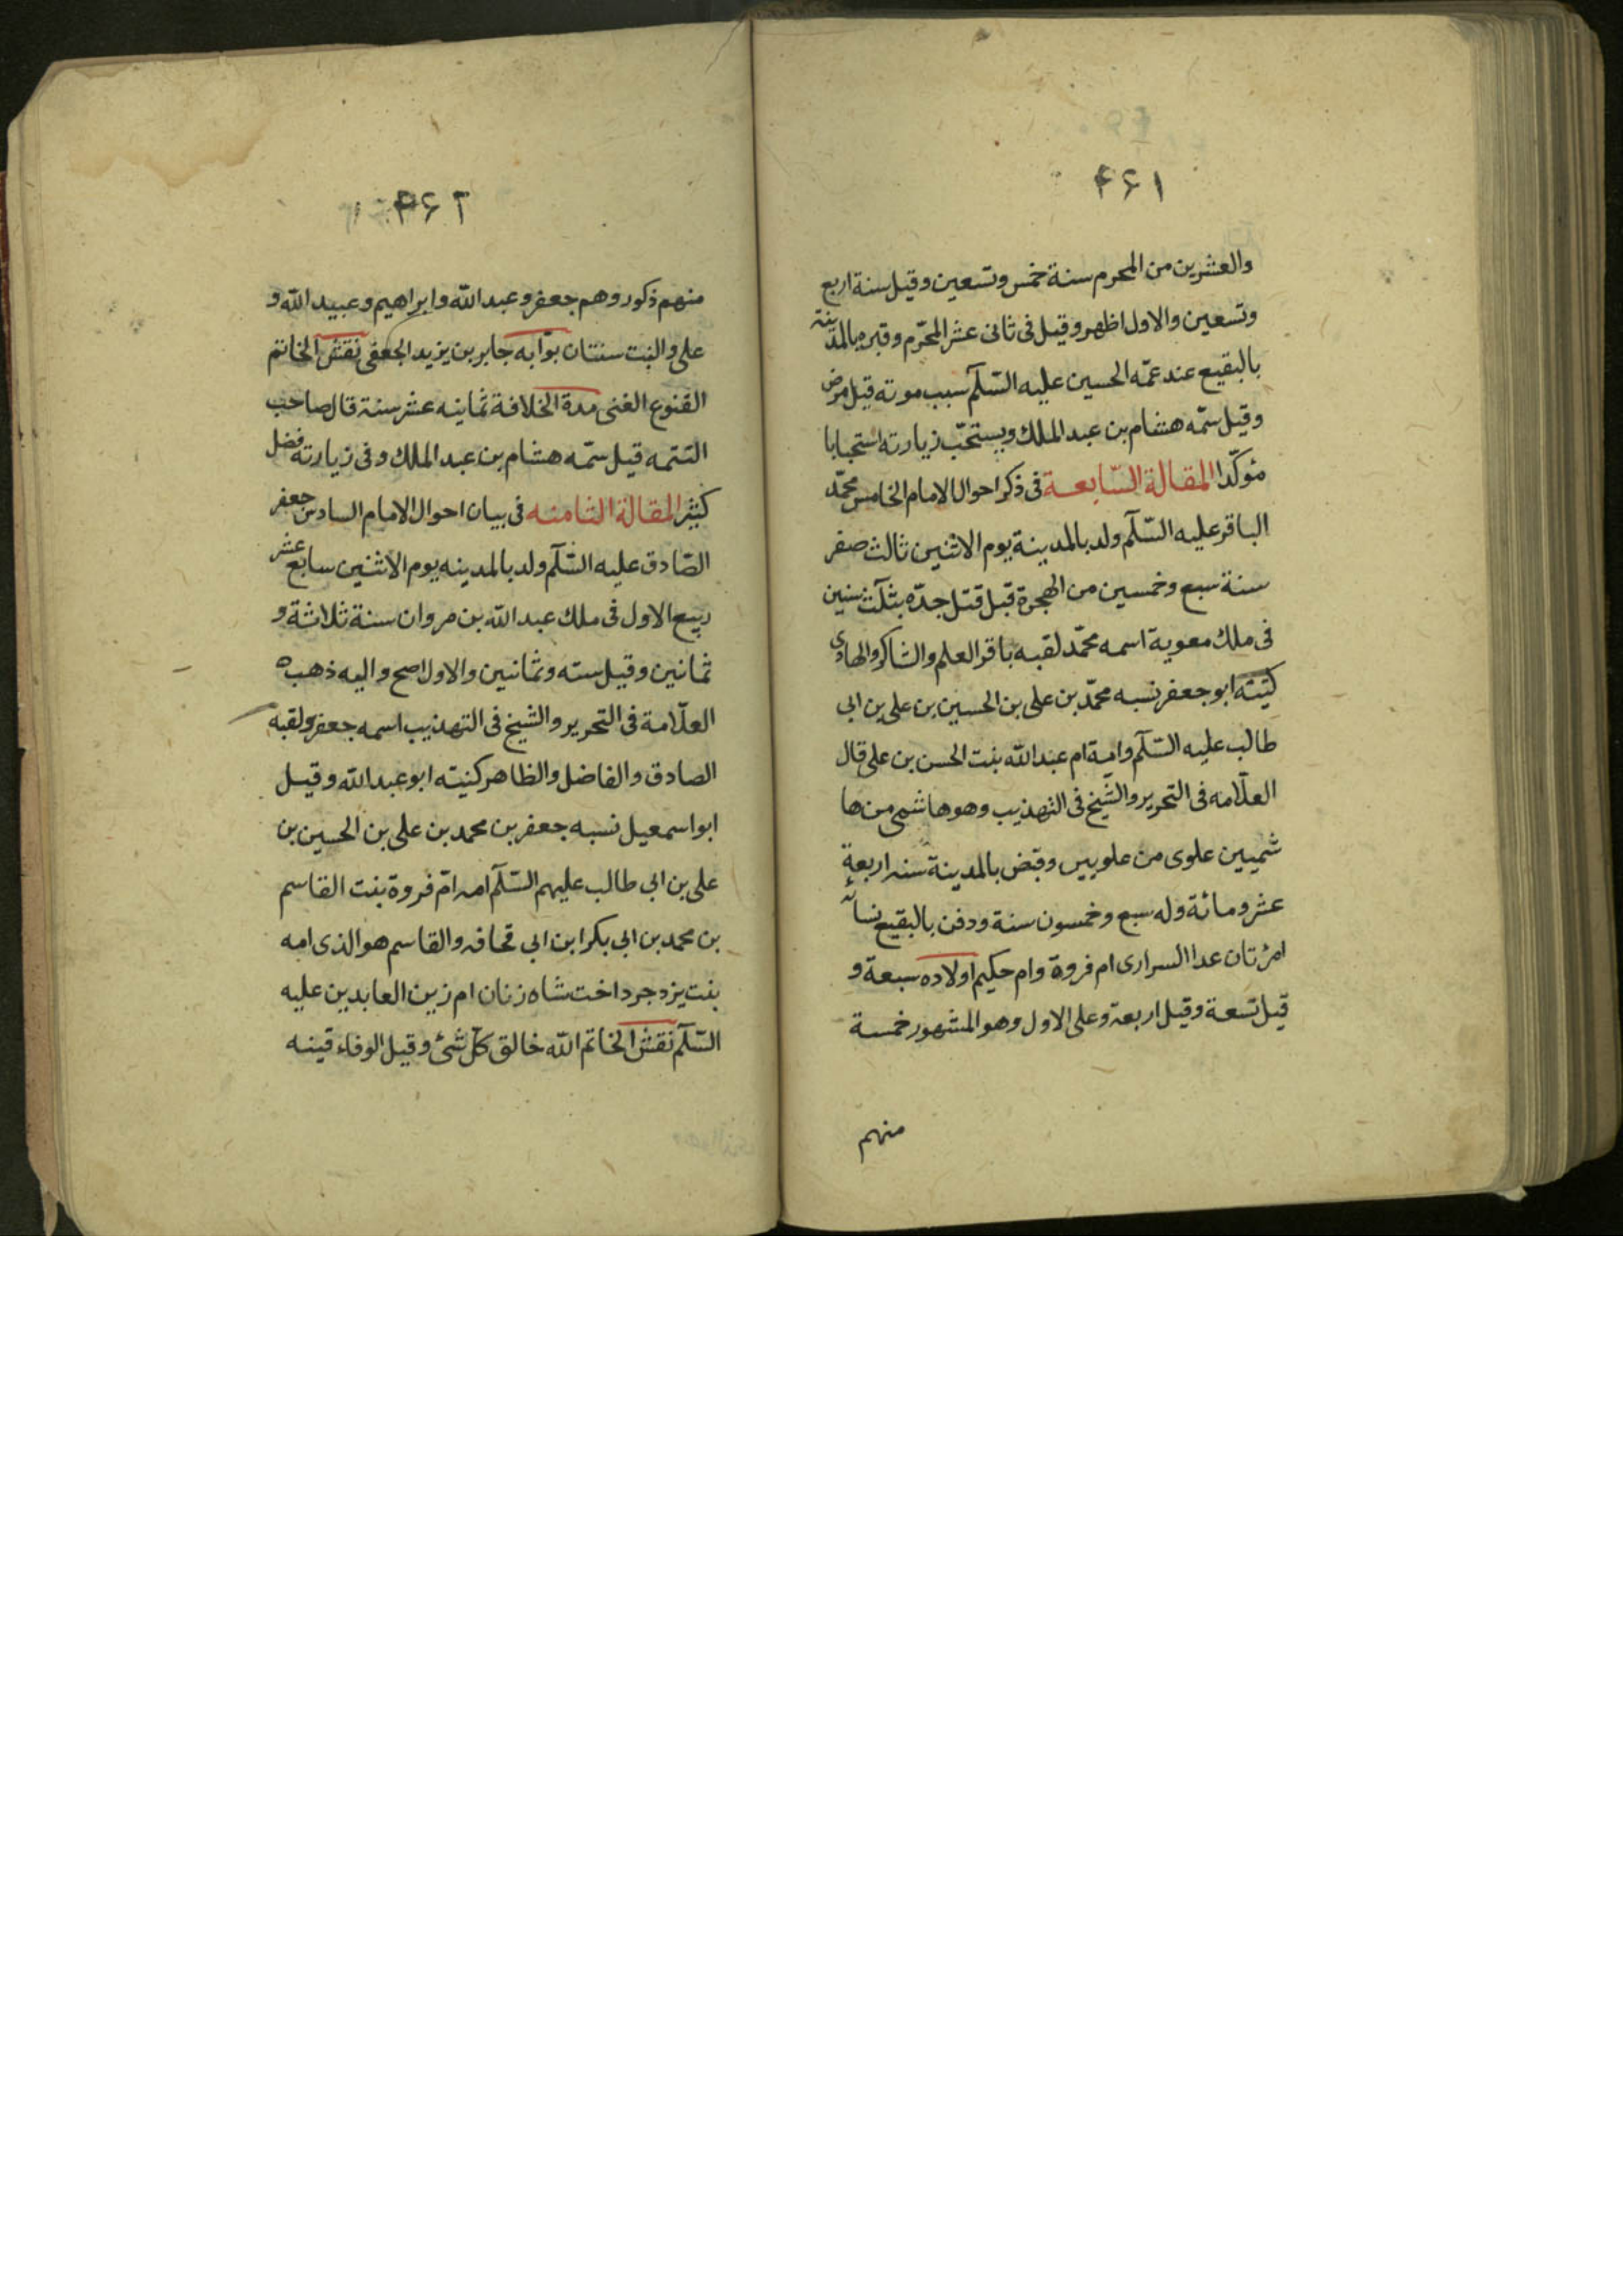 ۴۶۱
والعشرين من المحرم سنة خمس وتسعين وقيل سنة اربع
وتسعين والاول اظهر وقيل فى ثانى عشر المحرّم وقبره بالمدينة
بالبقيع عند عمّه الحسين عليه السّلم سبب موته قيل مرض
وقيل سمّه هشام بن عبد الملك ويستحبّ زيارته استحبابا
مؤكّدا المقالة السّابعة فى ذكر احوال الامام الخامس محمّد
الباقر عليه السّلم ولد بالمدينة يوم الاثنين ثالث صفر
سنة سبع وخمسين من الهجرة قبل قتل جدّه بثلث سنين
فى ملك معوية اسمه محمّد لقبه باقر العلم والشاكر والهادى
كنيته ابو جعفر نسبه محمّد بن على بن الحسين بن على بن ابى
طالب عليه السّلم وامه ام عبد الله بنت الحسن بن على قال
العلّامه فى التحرير والشيخ فى التهذيب وهو هاشمى من ها
شميين علوى من علويين وقبض بالمدينة سنه اربعة
عشر ومائة وله سبع وخمسون سنة ودفن بالبقيع نسائه
امرئتان عدا السرارى ام فروة وام حكيم اولاده سبعة و
قيل تسعة وقيل اربعة وعلى الاول وهو المشهور خمسة
منهم
۴۶۲
منهم ذكور وهم جعفر وعبد الله وابراهيم وعبيد الله و
على والبنت سنتان بوّابه جابر بن يزيد الجعفى نقش الخاتم
القنوع الغنى مدة الخلافة ثمانيه عشر سنة قال صاحب
التتمه قيل سمّه هشام بن عبد الملك وفى زيارته فضل
كثير المقالة الثامنه فى بيان احوال الامام السادس جعفر
الصّادق عليه السّلم ولد بالمدينه يوم الاثنين سابع عشر
ربيع الاول فى ملك عبد الله بن مروان سنة ثلاثة و
ثمانين وقيل سته وثمانين والاول اصح واليه ذهب
العلّامة فى التحرير والشيخ فى التهذيب اسمه جعفر ولقبه
الصادق والفاضل والظاهر كنيته ابو عبد الله وقيل
ابو اسمعيل نسبه جعفر بن محمد بن على بن الحسين بن
على بن ابي طالب عليهم السّلم امه امّ فروة بنت القاسم
بن محمد بن ابي بكر ابن ابي قحافه والقاسم هو الذى امه
بنت يزدجرد اخت شاه زنان ام زين العابدين عليه
السّلم نقش الخاتم الله خالق كلّ شئ وقيل الوفاء قينه